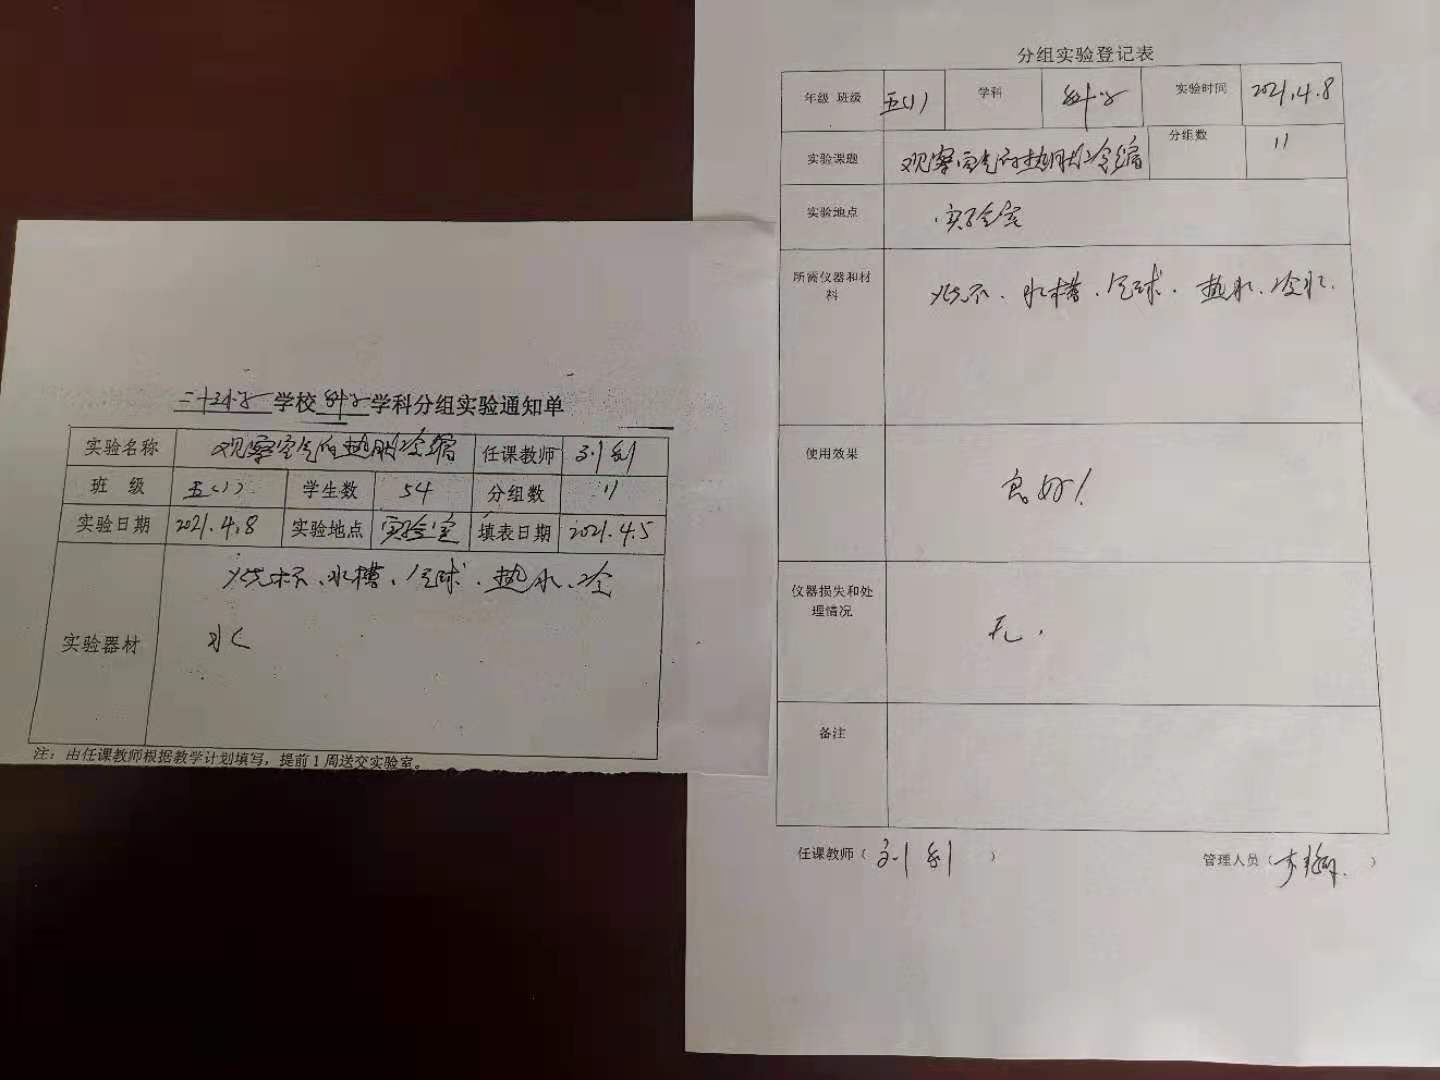 三十三小学学校科学学科分组实验通知单
实验名称 观察空气的热胀冷缩 任课教师 刘
班 级 五(1) 学生数 54 分组数 11
实验日期 2021.4.8 实验地点 实验室 填表日期 2021.4.5
实验器材 烧杯、水槽、气球、热水、冷
水
注：由任课教师根据教学计划填写，提前1周送交实验室。
分组实验登记表
年级 班级 五(1) 学科 科学 实验时间 2021.4.8
实验课题 观察空气的热胀冷缩 分组数 11
实验地点 实验室
所需仪器和材
料 烧杯、水槽、气球、热水、冷水.
使用效果 良好！
仪器损失和处
理情况 无.
备注
任课教师（刘 ） 管理人员（李 ）